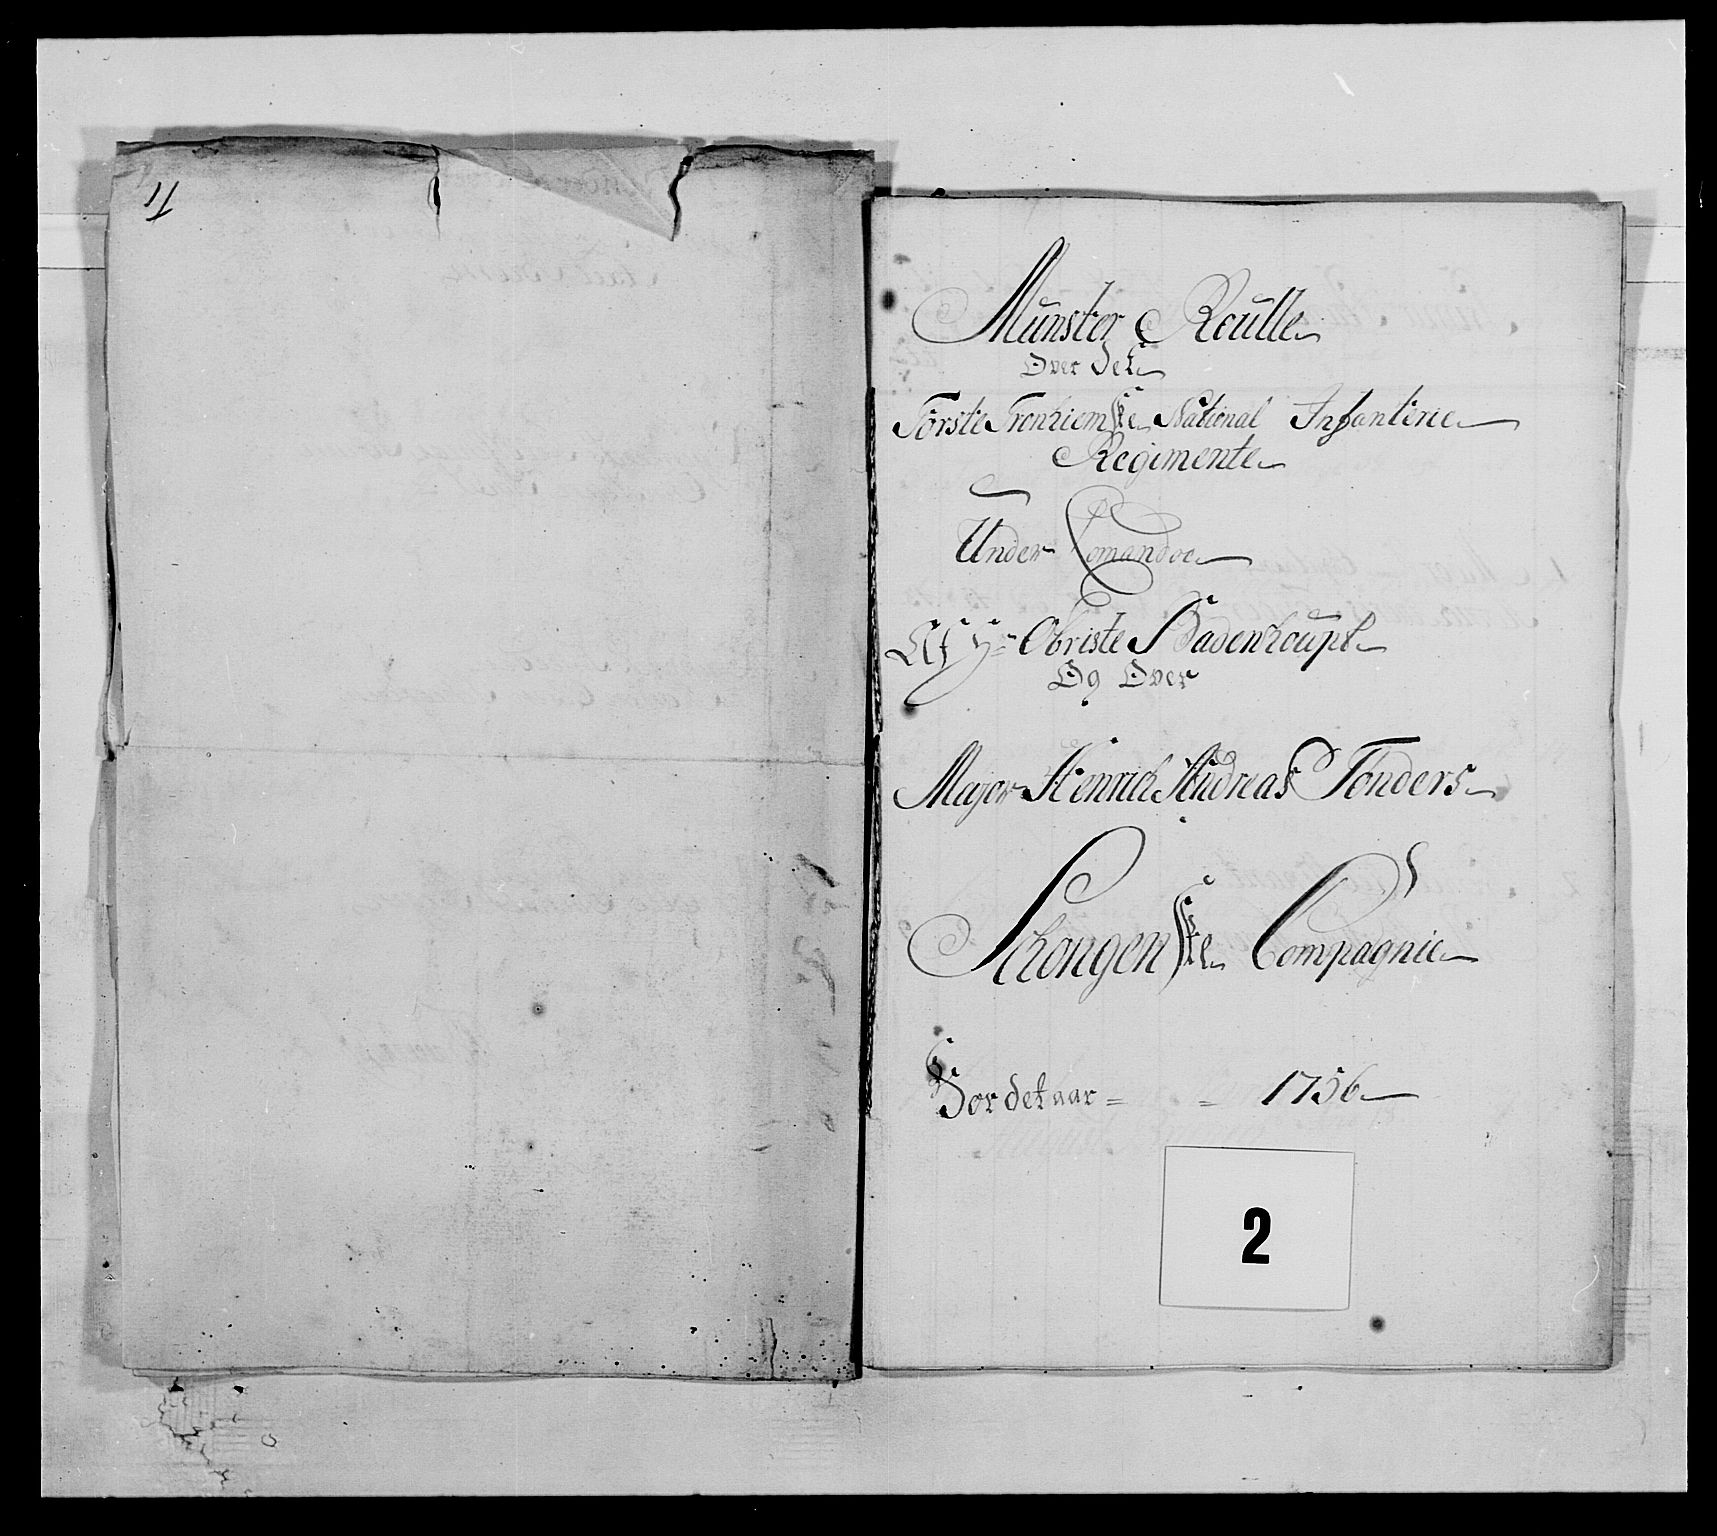 Munster Roulle
Over det
Förste Tronhiemske National Infanterie
Regimente
Under Comandoe
Af Hr Obriste Badenhoupt
Og Over
Major Henrich Andreas Tönders
Schongenske Compagnie
For det aar = = 1756
2